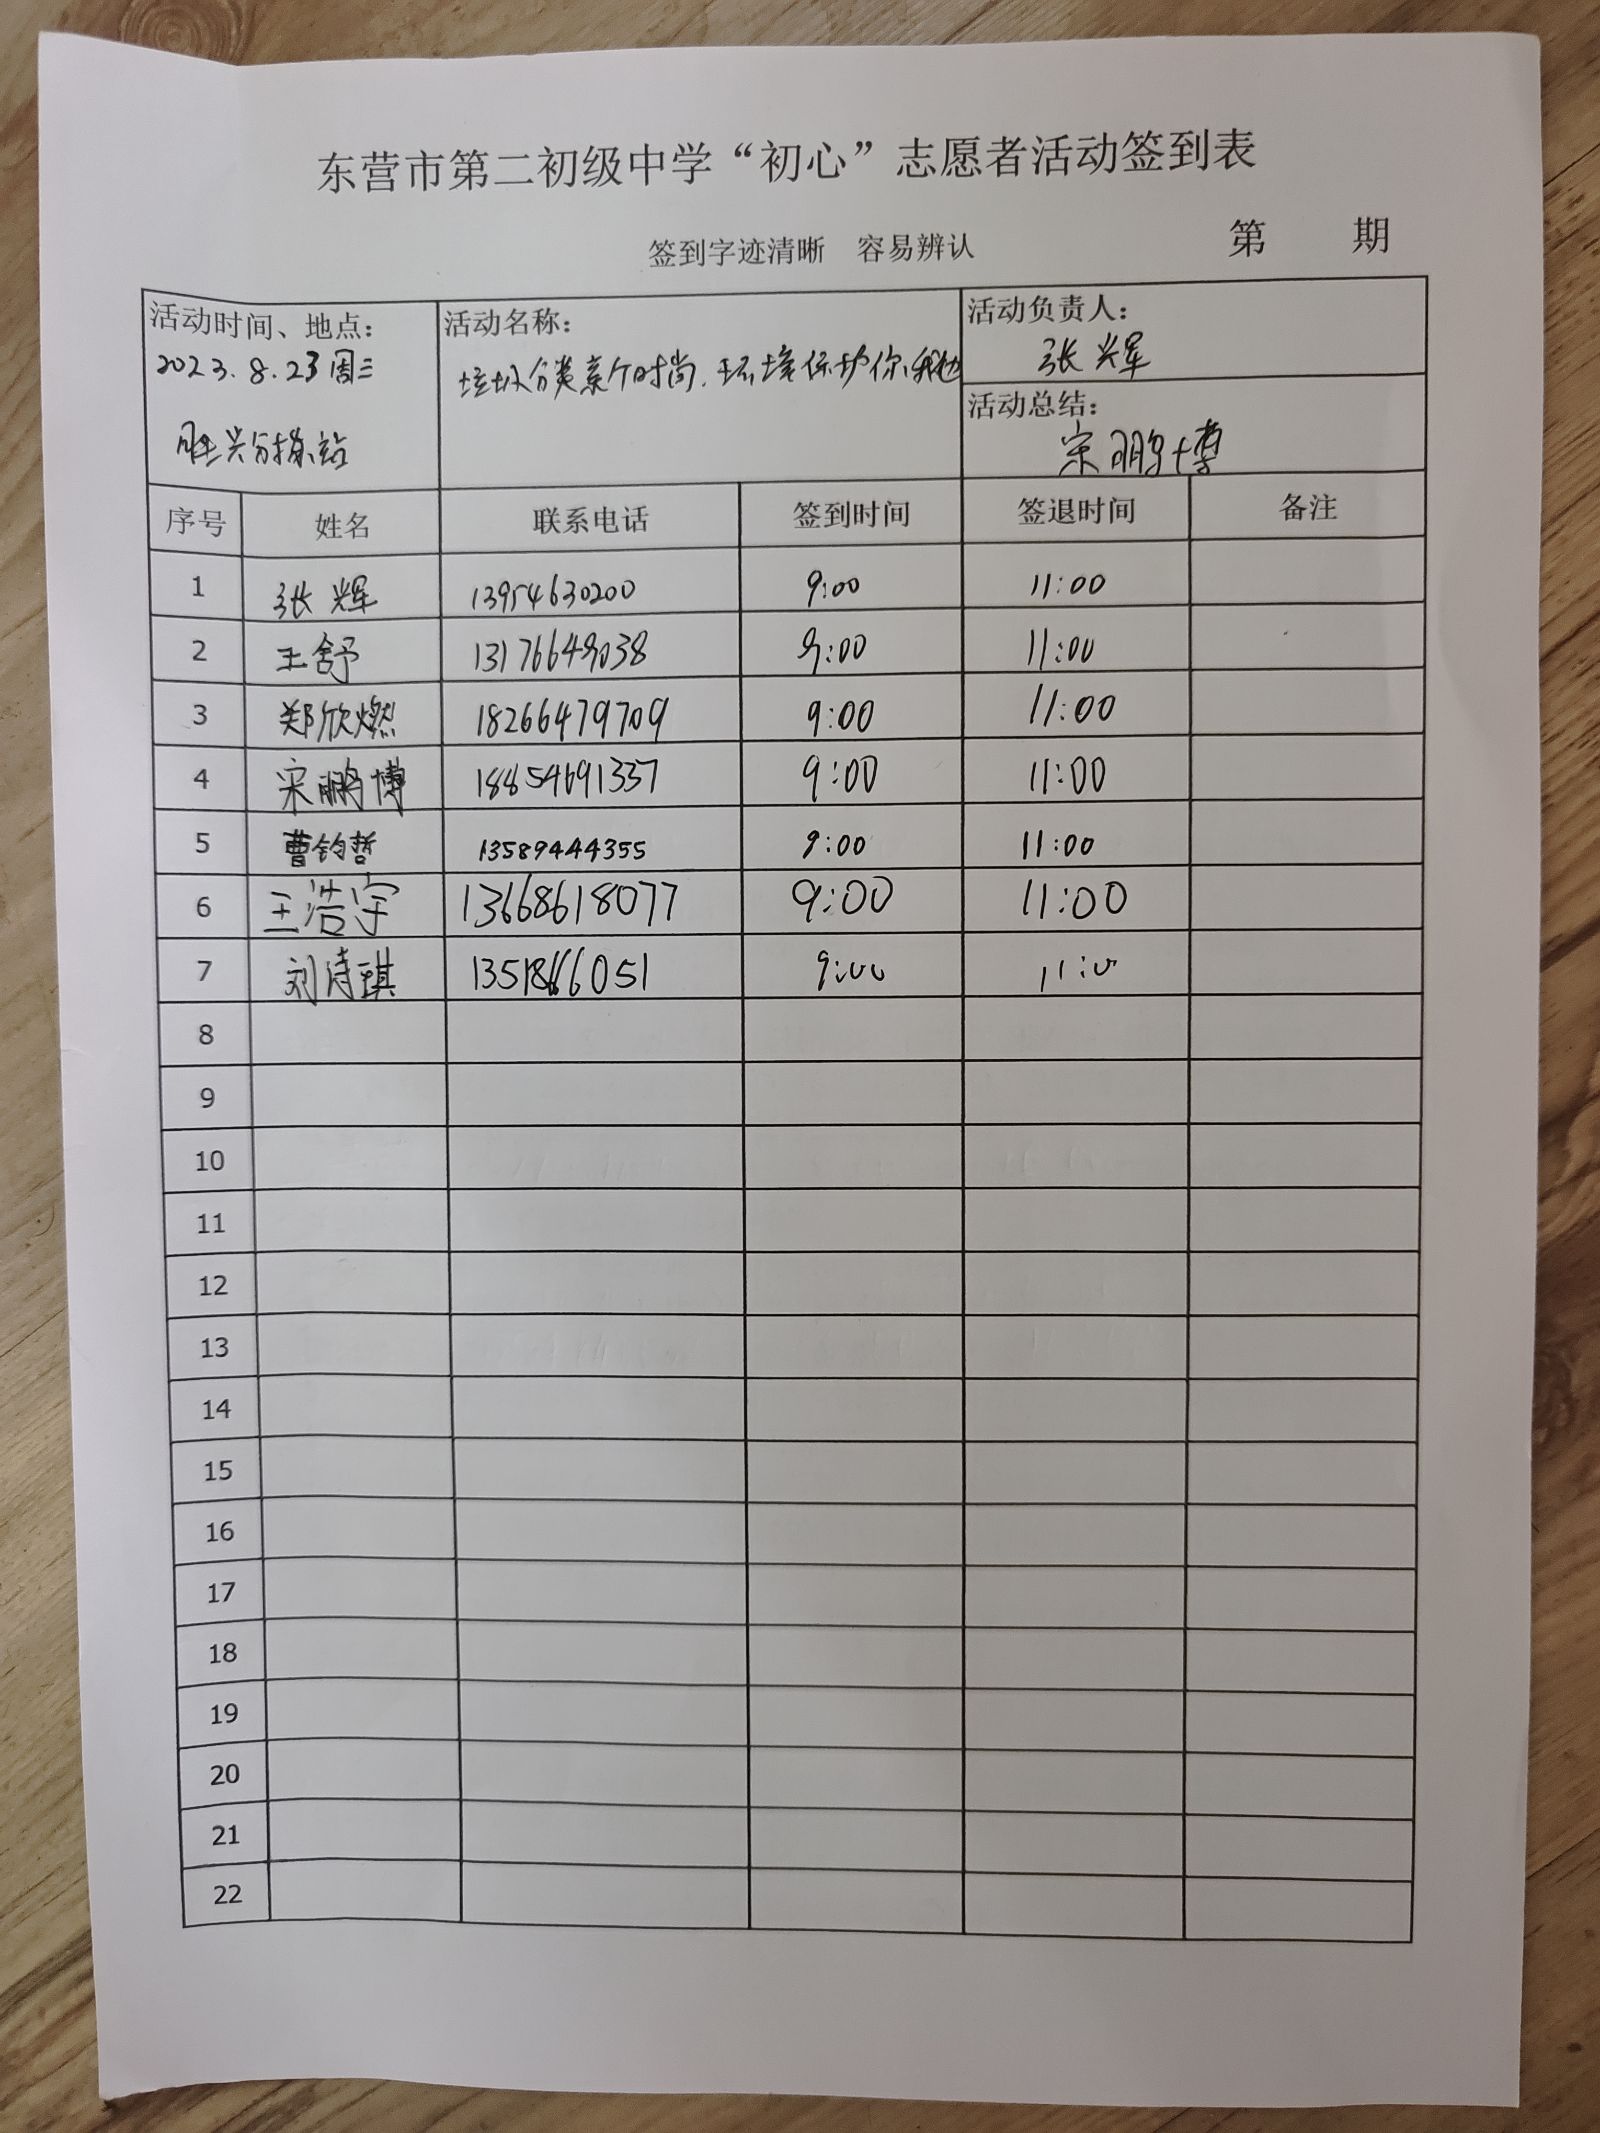 东营市第二初级中学“初心”志愿者活动签到表
签到字迹清晰 容易辨认 第 期
活动时间、地点: 活动名称: 活动负责人:
2023.8.23周三 垃圾分类亲个时尚.环境保护你我他 张辉
活动总结:
胜兴分拣站 宋鹏博
序号 姓名 联系电话 签到时间 签退时间 备注
1 张辉 13954630200 9:00 11:00
2 王舒 13176649038 9:00 11:00
3 郑欣燃 18266479709 9:00 11:00
4 宋鹏博 18854691337 9:00 11:00
5 曹钧哲 13589444355 9:00 11:00
6 王浩宇 13668618077 9:00 11:00
7 刘诗琪 9:00 11:0
8
9
10
11
12
13
14
15
16
17
18
19
20
21
22